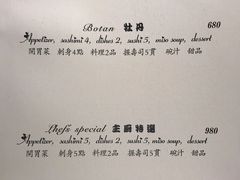 Botan 牡丹 680
Appetizer, sashimi 4, dishes 2, sushi 5, miso soup, dessert
開胃菜 刺身4點 料理2品 握壽司5貫 碗汁 甜品
Chefs special 主廚特選 980
Appetizer, sashimi 5, dishes 2, sushi 5, miso soup, dessert
開胃菜 刺身5點 料理2品 握壽司5貫 碗汁 甜品